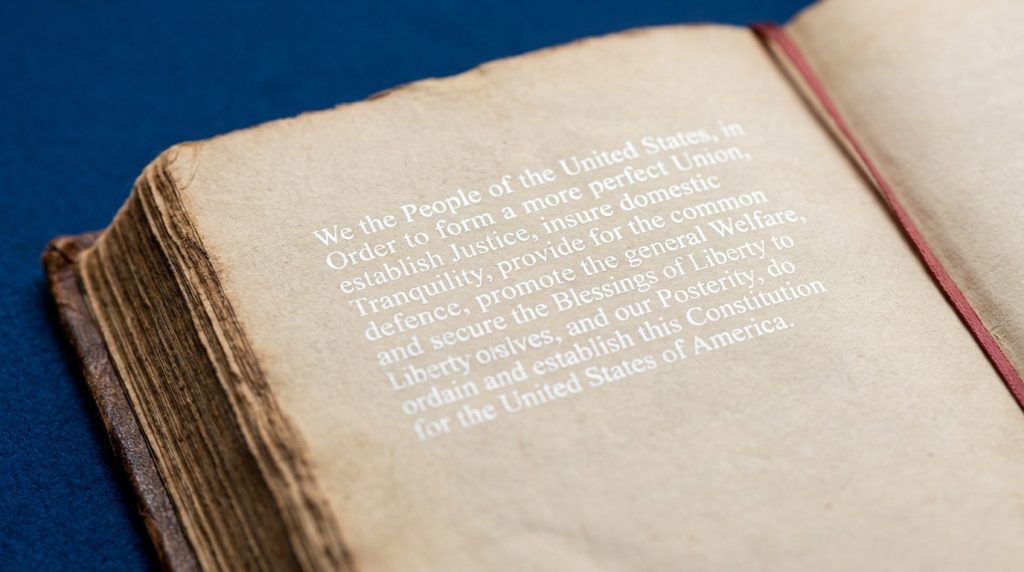 We the People of the United States, in
Order to form a more perfect Union,
establish Justice, insure domestic
Tranquility, provide for the common
defence, promote the general Welfare,
and secure the Blessings of Liberty to
Liberty oıslves, and our Posterity, do
ordain and establish this Constitution
for the United States of America.